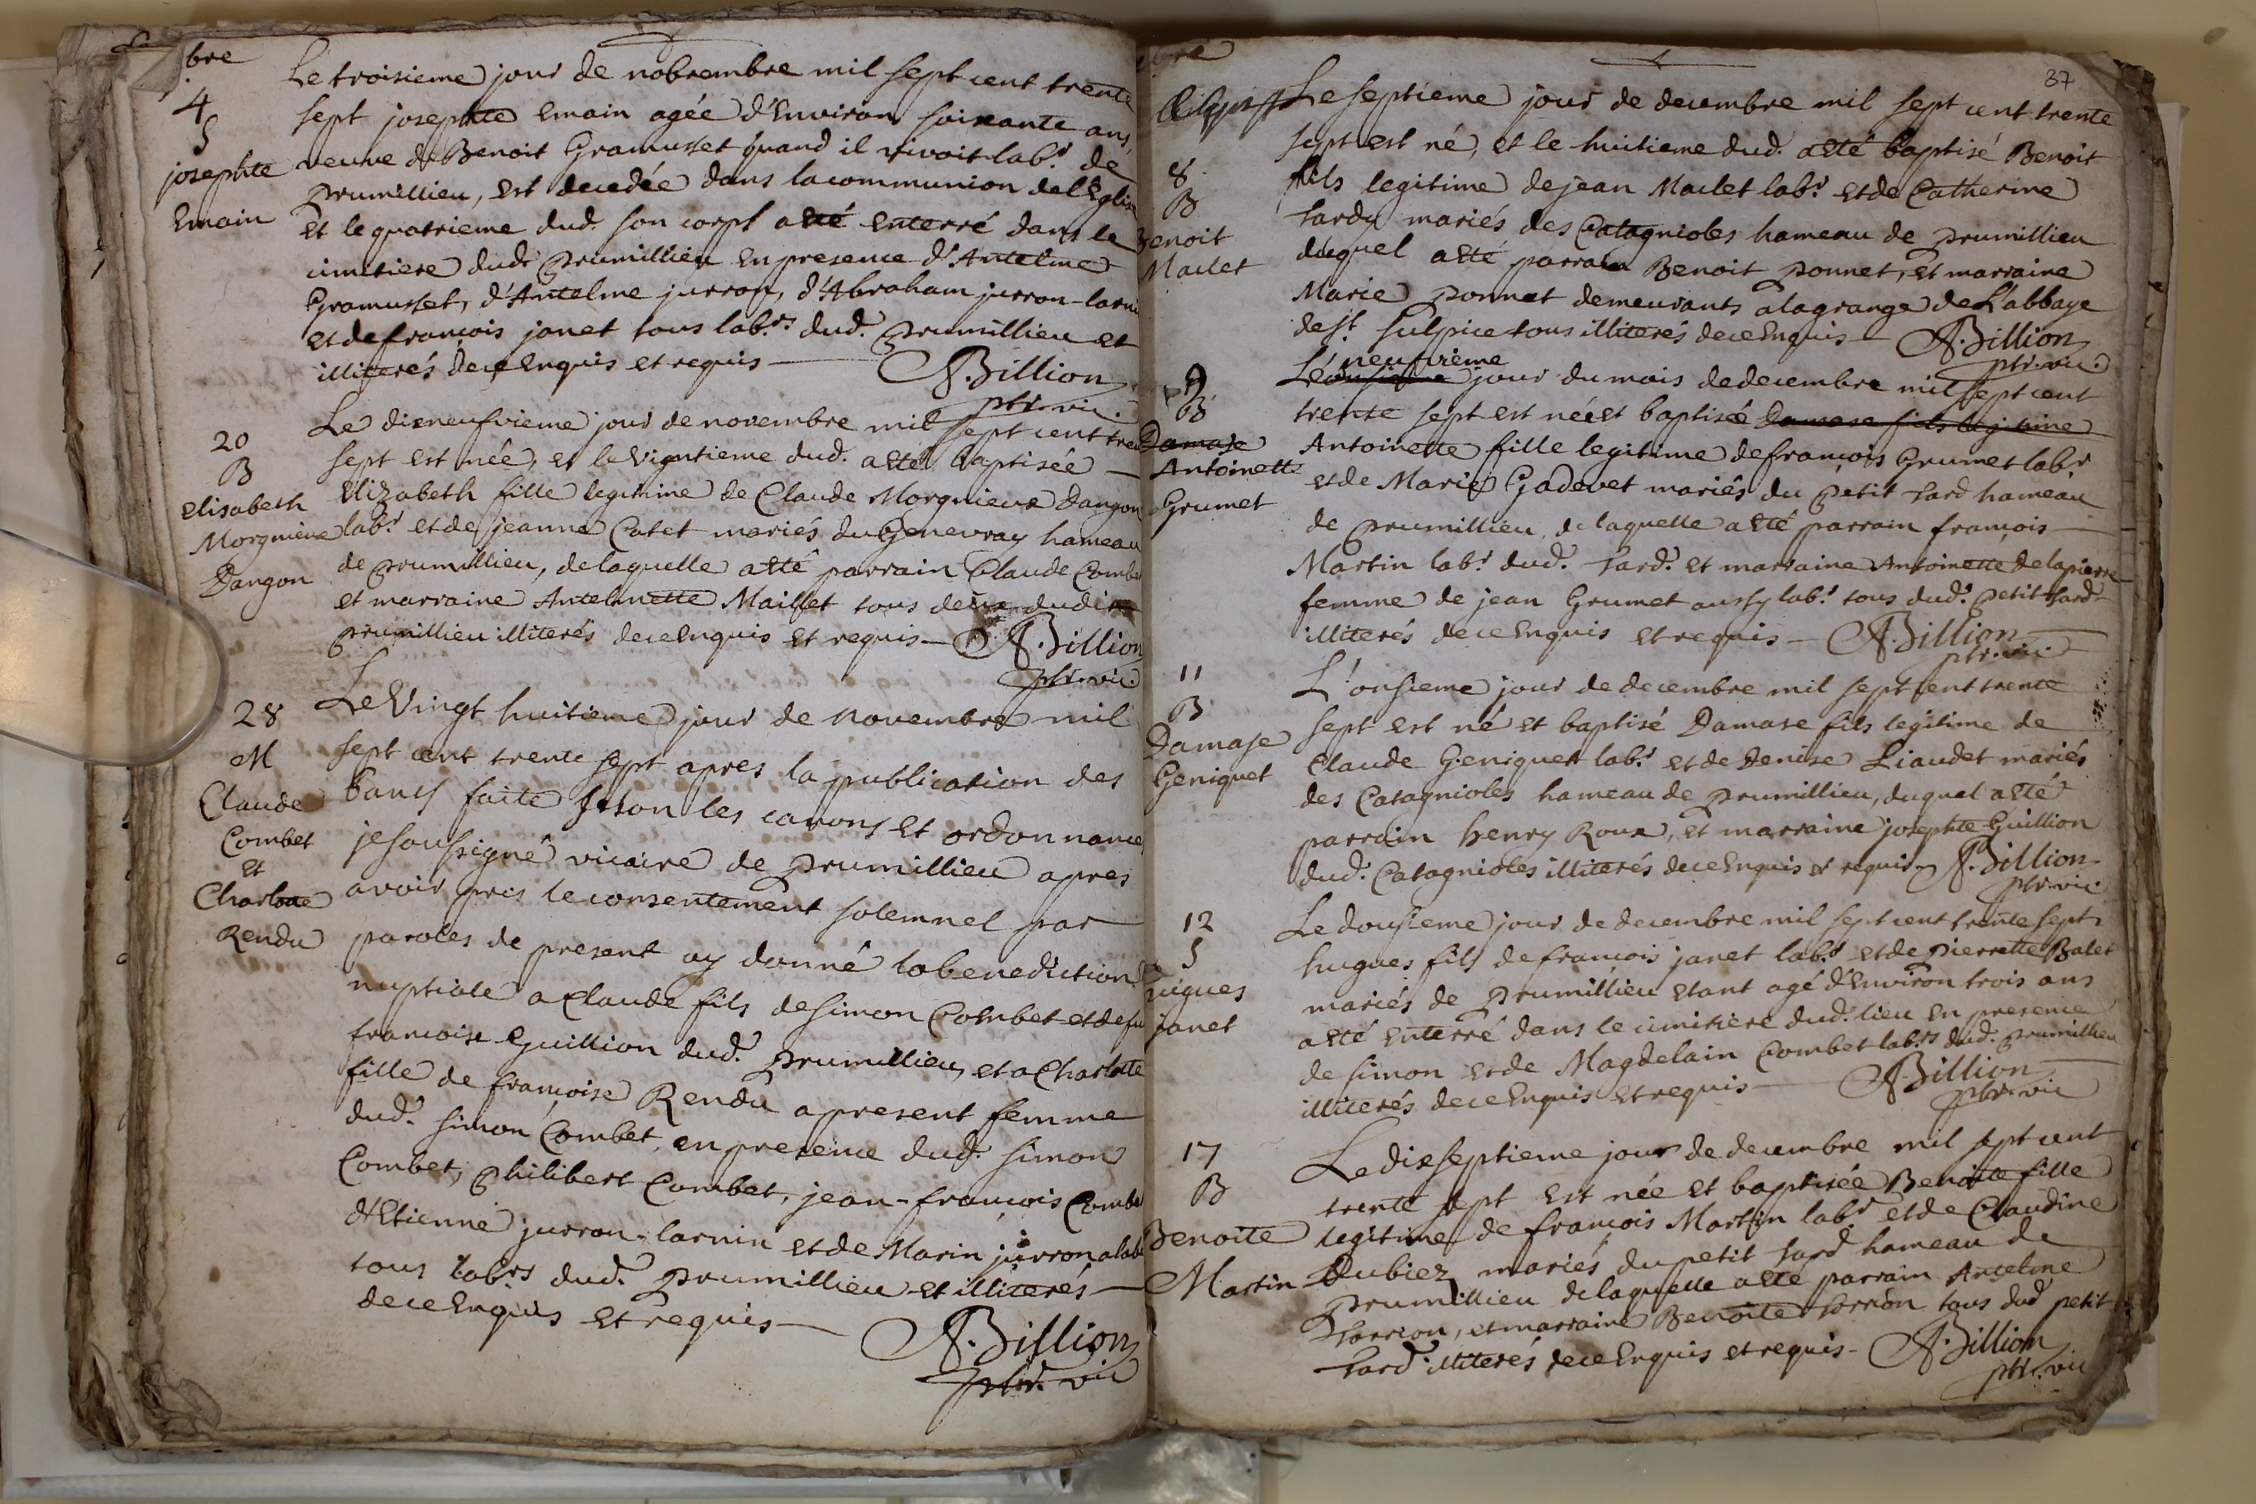 bre
4
S
josephte
Emain
Le troisieme jour de nobrembre mil sept cent trente
sept josephte Emain agée d'Environ soixante ans,
veuve de Benoit Gramusset quand il vivoit lab.r de
prumillieu, est decedée dans la communion de l'Eglise
et le quatrieme dud. son corps a eté enterré dans le
cimitiere dud. prumillieu en presence d'Antelme
Gramusset, d'Antelme jurron, d'Abraham jurron-larni
et de françois janet tous lab.rs dud. prumillieu et
illiterés de ce Enquis et requis — A. Billion
ptr. vic.
20
B
Elisabeth
Morgnieux
Dangon
Le dixneufvieme jour de novembre mil sept cent tren
sept est née, et le vigntieme dud. a eté baptisée —
Elizabeth fille legitime de Claude Morgnieux Dangon
lab.r et de jeanne Catet mariés du Genevray hameau
de prumillieu, de laquelle a eté parrain Claude Combe
et marraine Antelmette Maillet tous deux dudit
prumillieu illiterés de ce Enquis et requis — A. Billion
ptr. vic.
28
M
Claude
Combet
et
Charlotte
Rendu
Le Vingt huitieme jour de novembre mil
sept cent trente sept apres la publication des
bancs faite selon les canons et ordonnances
je soussigné vicaire de prumillieu apres
avoir pris le consentement solemnel par
paroles de present ay donné la benediction
nuptiale a Claude fils de Simon Combet et de fu
françoise Guillion dud. prumillieu, et a Charlotte
fille de françoise Rendu a present femme
dud. Simon Combet, en presence dud. Simon
Combet, philibert Combet, jean-françois Combe
d'Etienne jurron-larnin et de Marin jurron alab
tous lab.rs dud. prumillieu et illiterés —
de ce Enquis et requis — A. Billion
ptr. vic
bre
37
8
B
Benoit
Maclet
Le septieme jour de decembre mil sept cent trente
sept est né, et le huitieme dud. a eté baptisé Benoit
fils legitime de jean Maclet lab.r et de Catherine
tardy mariés des Catagnioles hameau de prumillieu
duquel a eté parrain Benoit ponnet, et marraine
Marie ponnet demeurants a la grange de L'abbaye
de s.t sulpice tous illiterés de ce Enquis — A. Billion
ptr. vic.
9
B
Damase
Antoinette
Grumet
neufvieme
Le onsieme jour du mois de decembre mil sept cent
trente sept est née et baptisée Damase fils legitime
Antoinette fille legitime de françois Grumet lab.r
et de Marie Gadevet mariés du petit tard hameau
de prumillieu, de laquelle a eté parrain françois —
Martin lab.r dud. tard. et marraine Antoinette Delapierre
femme de jean Grumet aussy lab.r tous dud. petit tard
illiterés de ce Enquis et requis — A. Billion
ptr. vic.
11
B
Damase
Geniquet
L'onsieme jour de decembre mil sept cent trente
sept est né et baptisé Damase fils legitime de
Claude Geniquet lab.r et de Denise Liaudet mariés
des Catagnioles hameau de prumillieu, duquel a eté
parrain henry Roux, et marraine josephte Guillion
dud. Catagnioles illiterés de ce Enquis et requis A. Billion
ptr. vic.
12
S
hugues
janet
Le dousieme jour de decembre mil sept cent trente sept
hugues fils de françois janet lab.r et de pierrette Balet
mariés de prumillieu etant agé d'Environ trois ans
a eté enterré dans le cimitiere dud. lieu en presence
de simon et de Magdelain Combet lab.rs dud. prumillieu
illiterés de ce Enquis et requis — A. Billion
ptr. vic
17
B
Benoite
Martin
Le dixseptieme jour de decembre mil sept cent
trente sept est née et baptisée Benoite fille
legitime de françois Martin lab.r et de Claudine
Dubiez mariés du petit tard hameau de
prumillieu de laquelle a eté parrain Antelme
, et marraine Benoite tous dud petit
tard. illiterés de ce Enquis et requis — A. Billion
ptr. vic